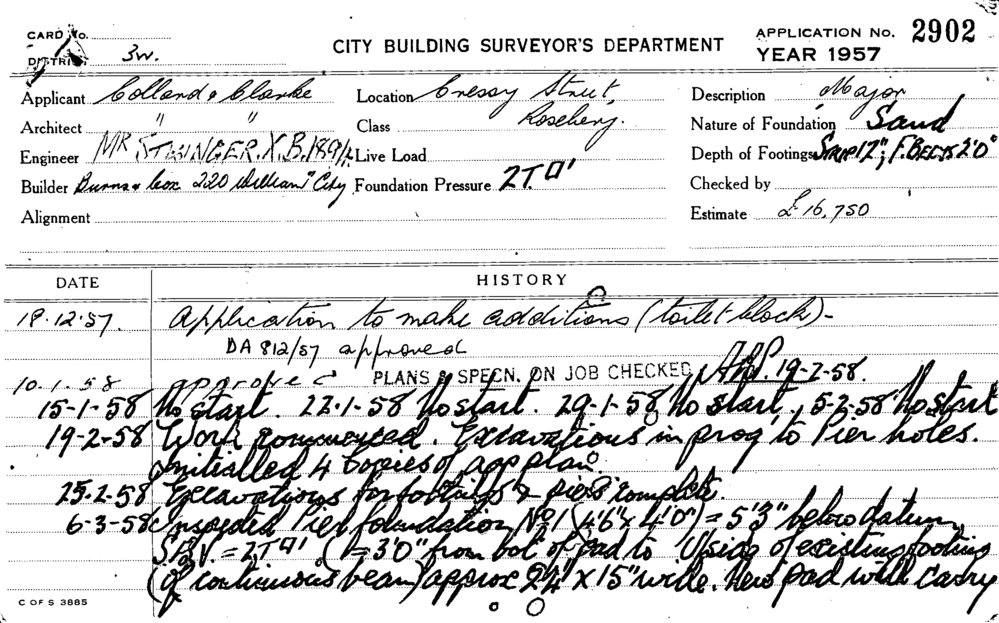 CARD No. CITY BUILDING SURVEYOR'S DEPARTMENT APPLICATION No. 2902
DISTRICT 3w. YEAR 1957
Applicant Colland & Clarke Location Cressy Street, Description Major
Architect " " Class Rosebery. Nature of Foundation Sand
Engineer MR Live Load Depth of Footings STRIP 12"; F.BECKS 2'0"
Builder Burns & Cox 220 William St City Foundation Pressure 2T□' Checked by
Alignment Estimate £16,750
DATE HISTORY
18.12.57. Application to make additions (toilet block)-
DA 812/57 approved
10.1.58 approved PLANS & SPECN. ON JOB CHECKED 19-2-58.
15-1-58 No start. 22-1-58 No start. 29-1-58 No start. 5-2-58 No start
19-2-58 Work commenced. Excavations in prog to Pier holes.
Initialled 4 Copies of app plan.
25.2.58 Excavations for footings & piers complete.
6-3-58 Inspected Pier foundation No 1 (4'6" x 4'0") = 5'3" below datum
S.B.V. = 2T□' ( = 3'0" from bot of pad to U'side of existing footing
(of continuous beam) approx 24" x 15" wide. New pad will carry
C OF S 3885